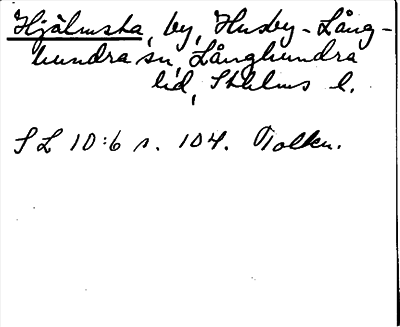 Hjälmsta, by, Husby-Lång-
hundra sn, Långhundra
hd, Sthlms l.
SL 10:6 s. 104. Tolkn.